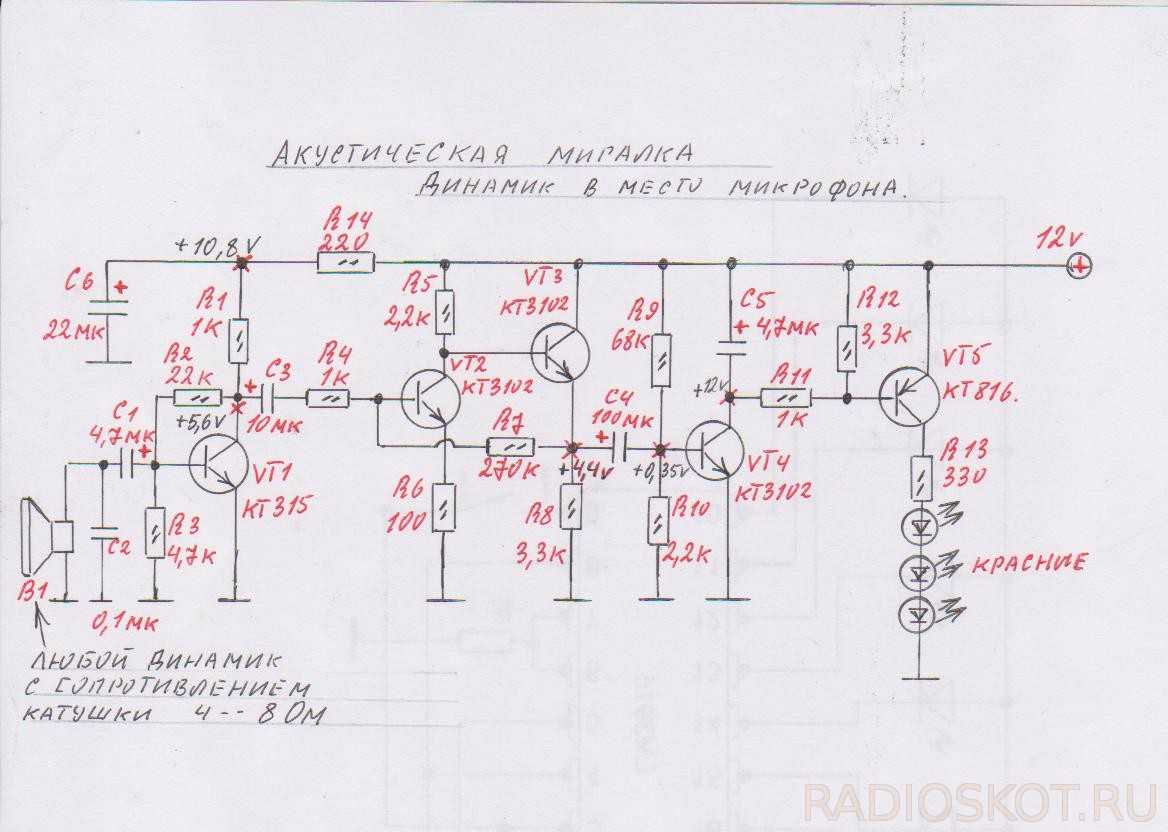 АКУСТИЧЕСКАЯ МИГАЛКА
ДИНАМИК В МЕСТО МИКРОФОНА.
12v
+
+10,8v
R14
220
C6 +
22мк
R1
1К
R5
2,2к
VT3
КТ3102
R9
68к
C5
+ 4,7мк
R12
3,3к
R2
22к
+5,6v
C3
+
10мк
R4
1к
VT2
КТ3102
+12v
R11
1к
VT5
КТ816.
C1
4,7мк
+
VT1
КТ315
R7
270к
C4
100мк
+
+4,4v
+0,35v
VT4
КТ3102
R13
330
C2
0,1мк
R3
4,7к
R6
100
R8
3,3к
R10
2,2к
КРАСНЫЕ
B1
ЛЮБОЙ ДИНАМИК
С СОПРОТИВЛЕНИЕМ
КАТУШКИ 4 -- 8 Ом
RADIOSKOT.RU